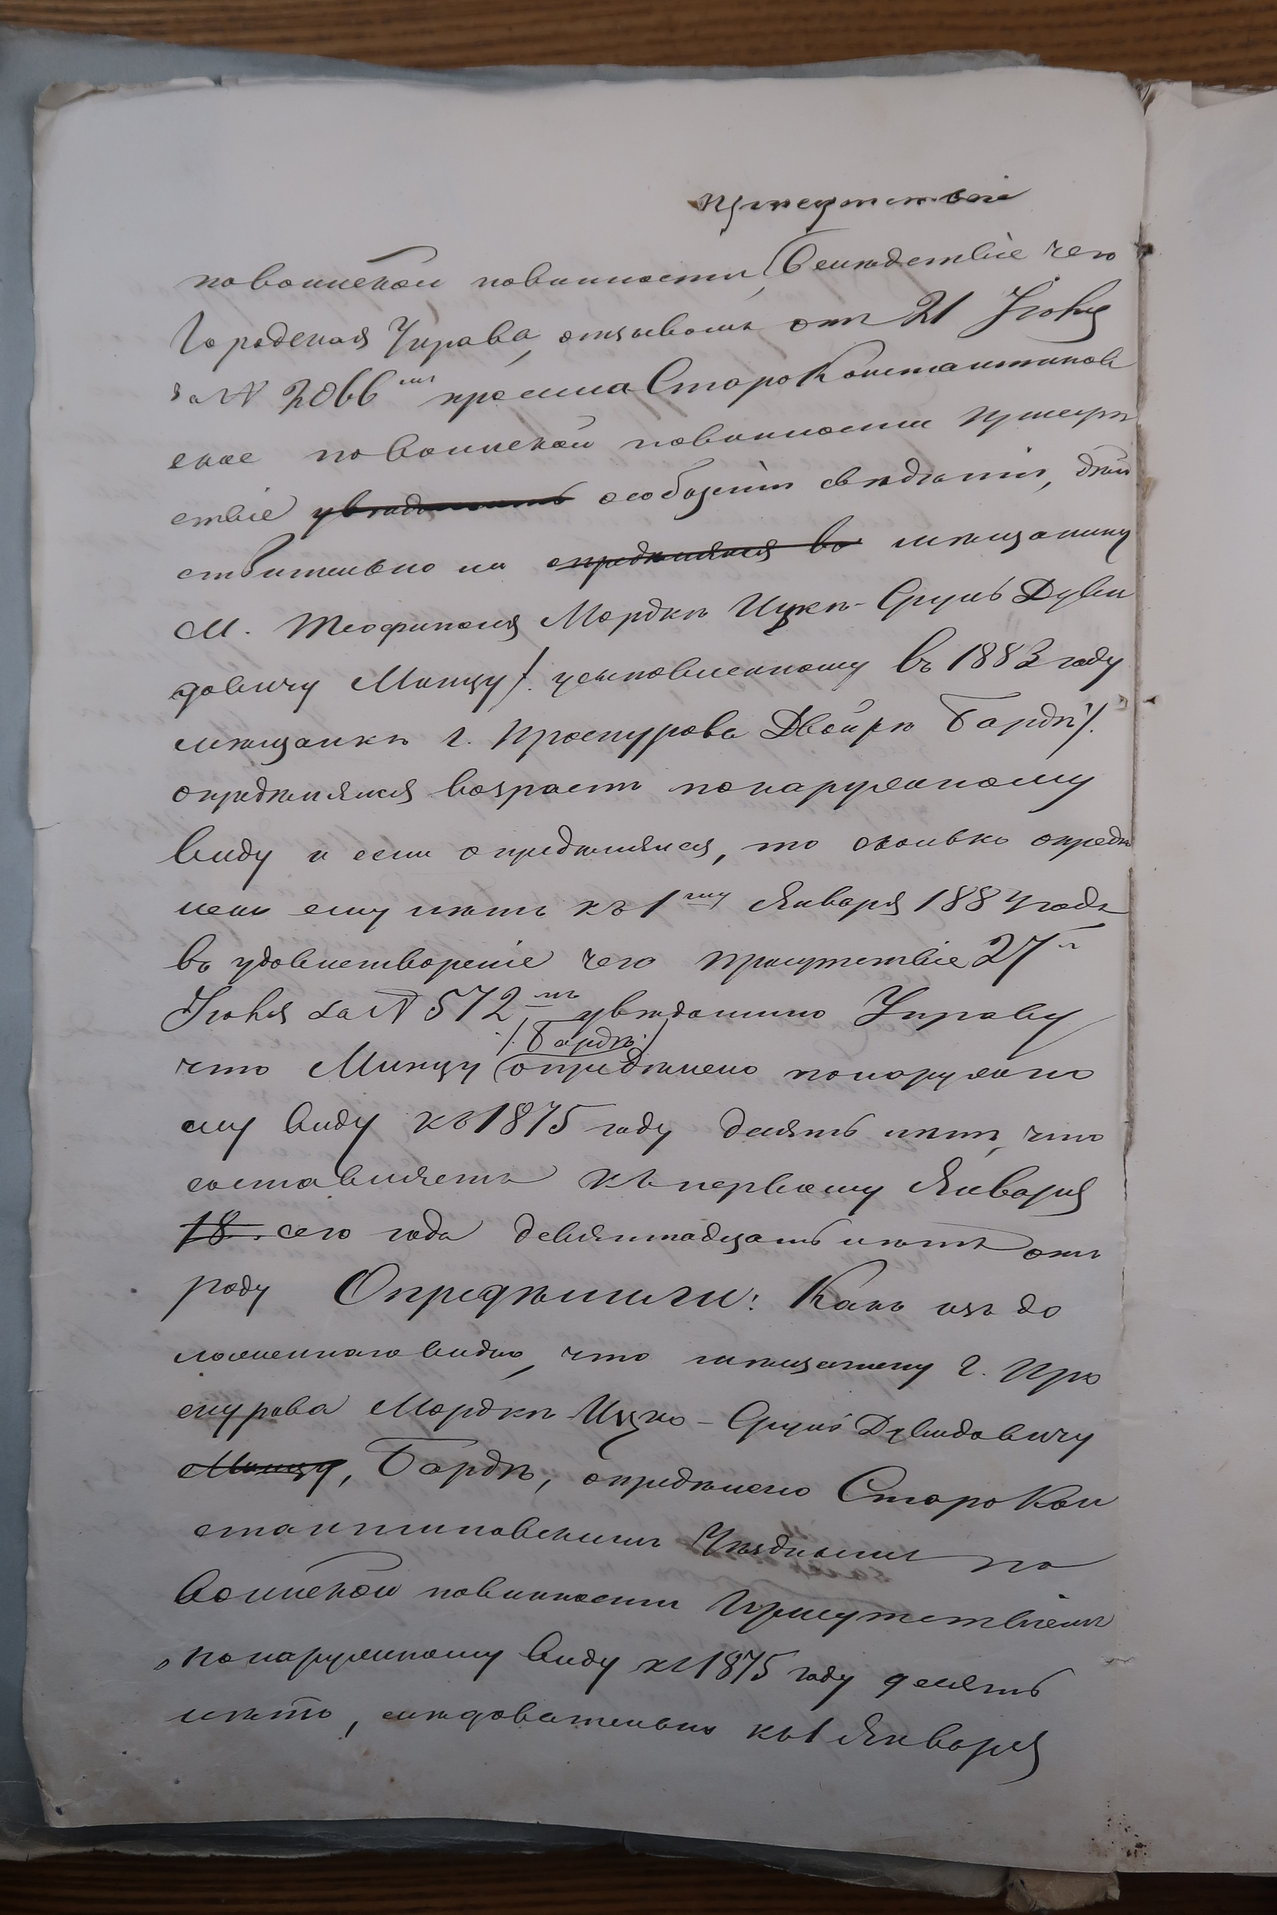 присутствіе
по воинской повинности, Вслѣдствіе чего
Городская Управа, отзывомъ отъ 21 Іюня
за № 2066мъ просила Старо Константинов
ское по воинской повинности присут
ствіе увѣдомить особщить свѣдѣніе, дѣй
ствительно ли опредѣлялся во мѣщанину
М. Теофиполя Мордкѣ Ицкѣ-Срулю Дуви
довичу Минцу /. усыновленному въ 1883 году
мѣщанкѣ г. Проскурова Двойрѣ Бардъ/.
опредѣлялся возрастъ по наружному
виду и если опредѣлялся, то сколько опредѣ
лено ему лѣтъ къ 1му Января 1884 года
въ удовлетвореніе чего присутствіе 27го
Іюня за № 572мъ увѣдомило Управу
/.Бардъ./
что Минцу опредѣлено по наружно
му виду къ 1875 году десять лѣтъ, что
составляетъ къ первому Января
18. сего года девятнадцать лѣтъ отъ
роду Опредѣлили: Какъ изъ до
ложеннаго видно, что мѣщанину г. Про
скурова Мордкѣ Ицко-Срулю Дувидовичу
Минцу, Бардъ, опредѣлено Старо Кон
стантиновскимъ Уѣзднымъ по
воинской повинности Присутствіемъ
по наружному виду къ 1875 году десять
лѣтъ, слѣдовательно къ 1 Января